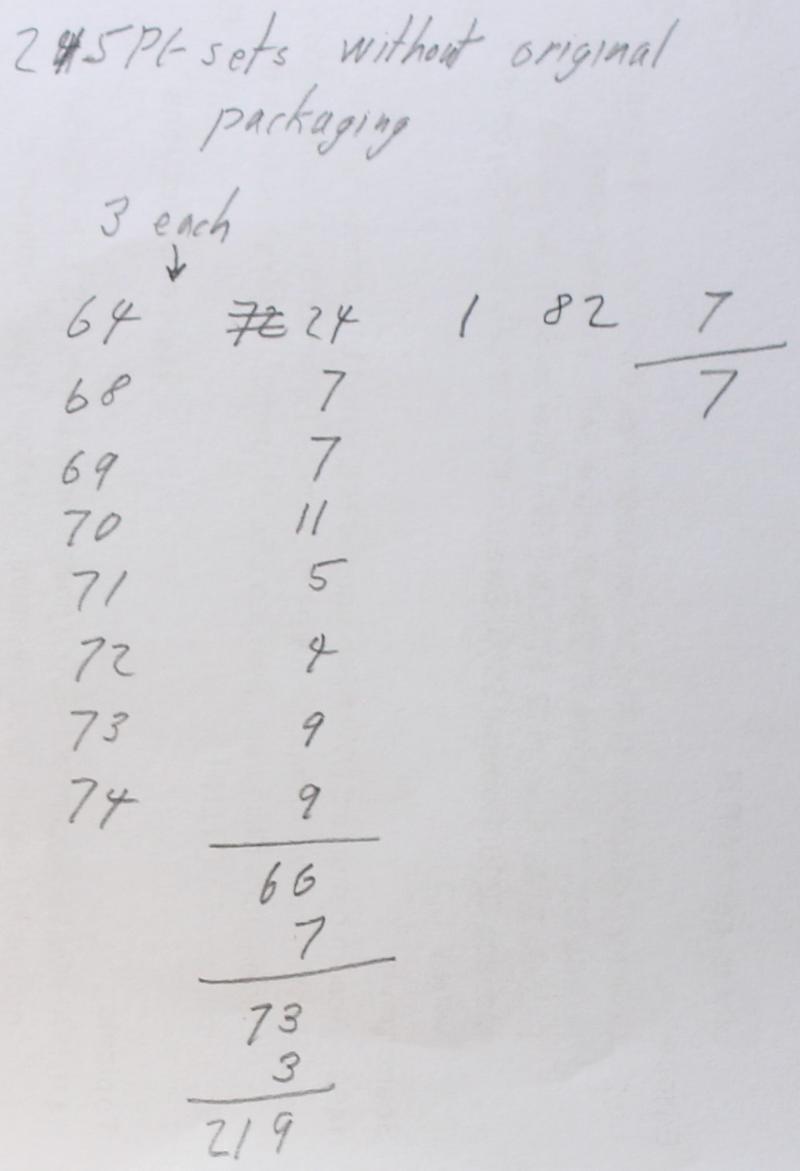 25 Pf sets without original
packaging
3 each
↓
64 72 24 1 82 7
68 7 7
69 7
70 11
71 5
72 4
73 9
74 9
66
7
73
3
219